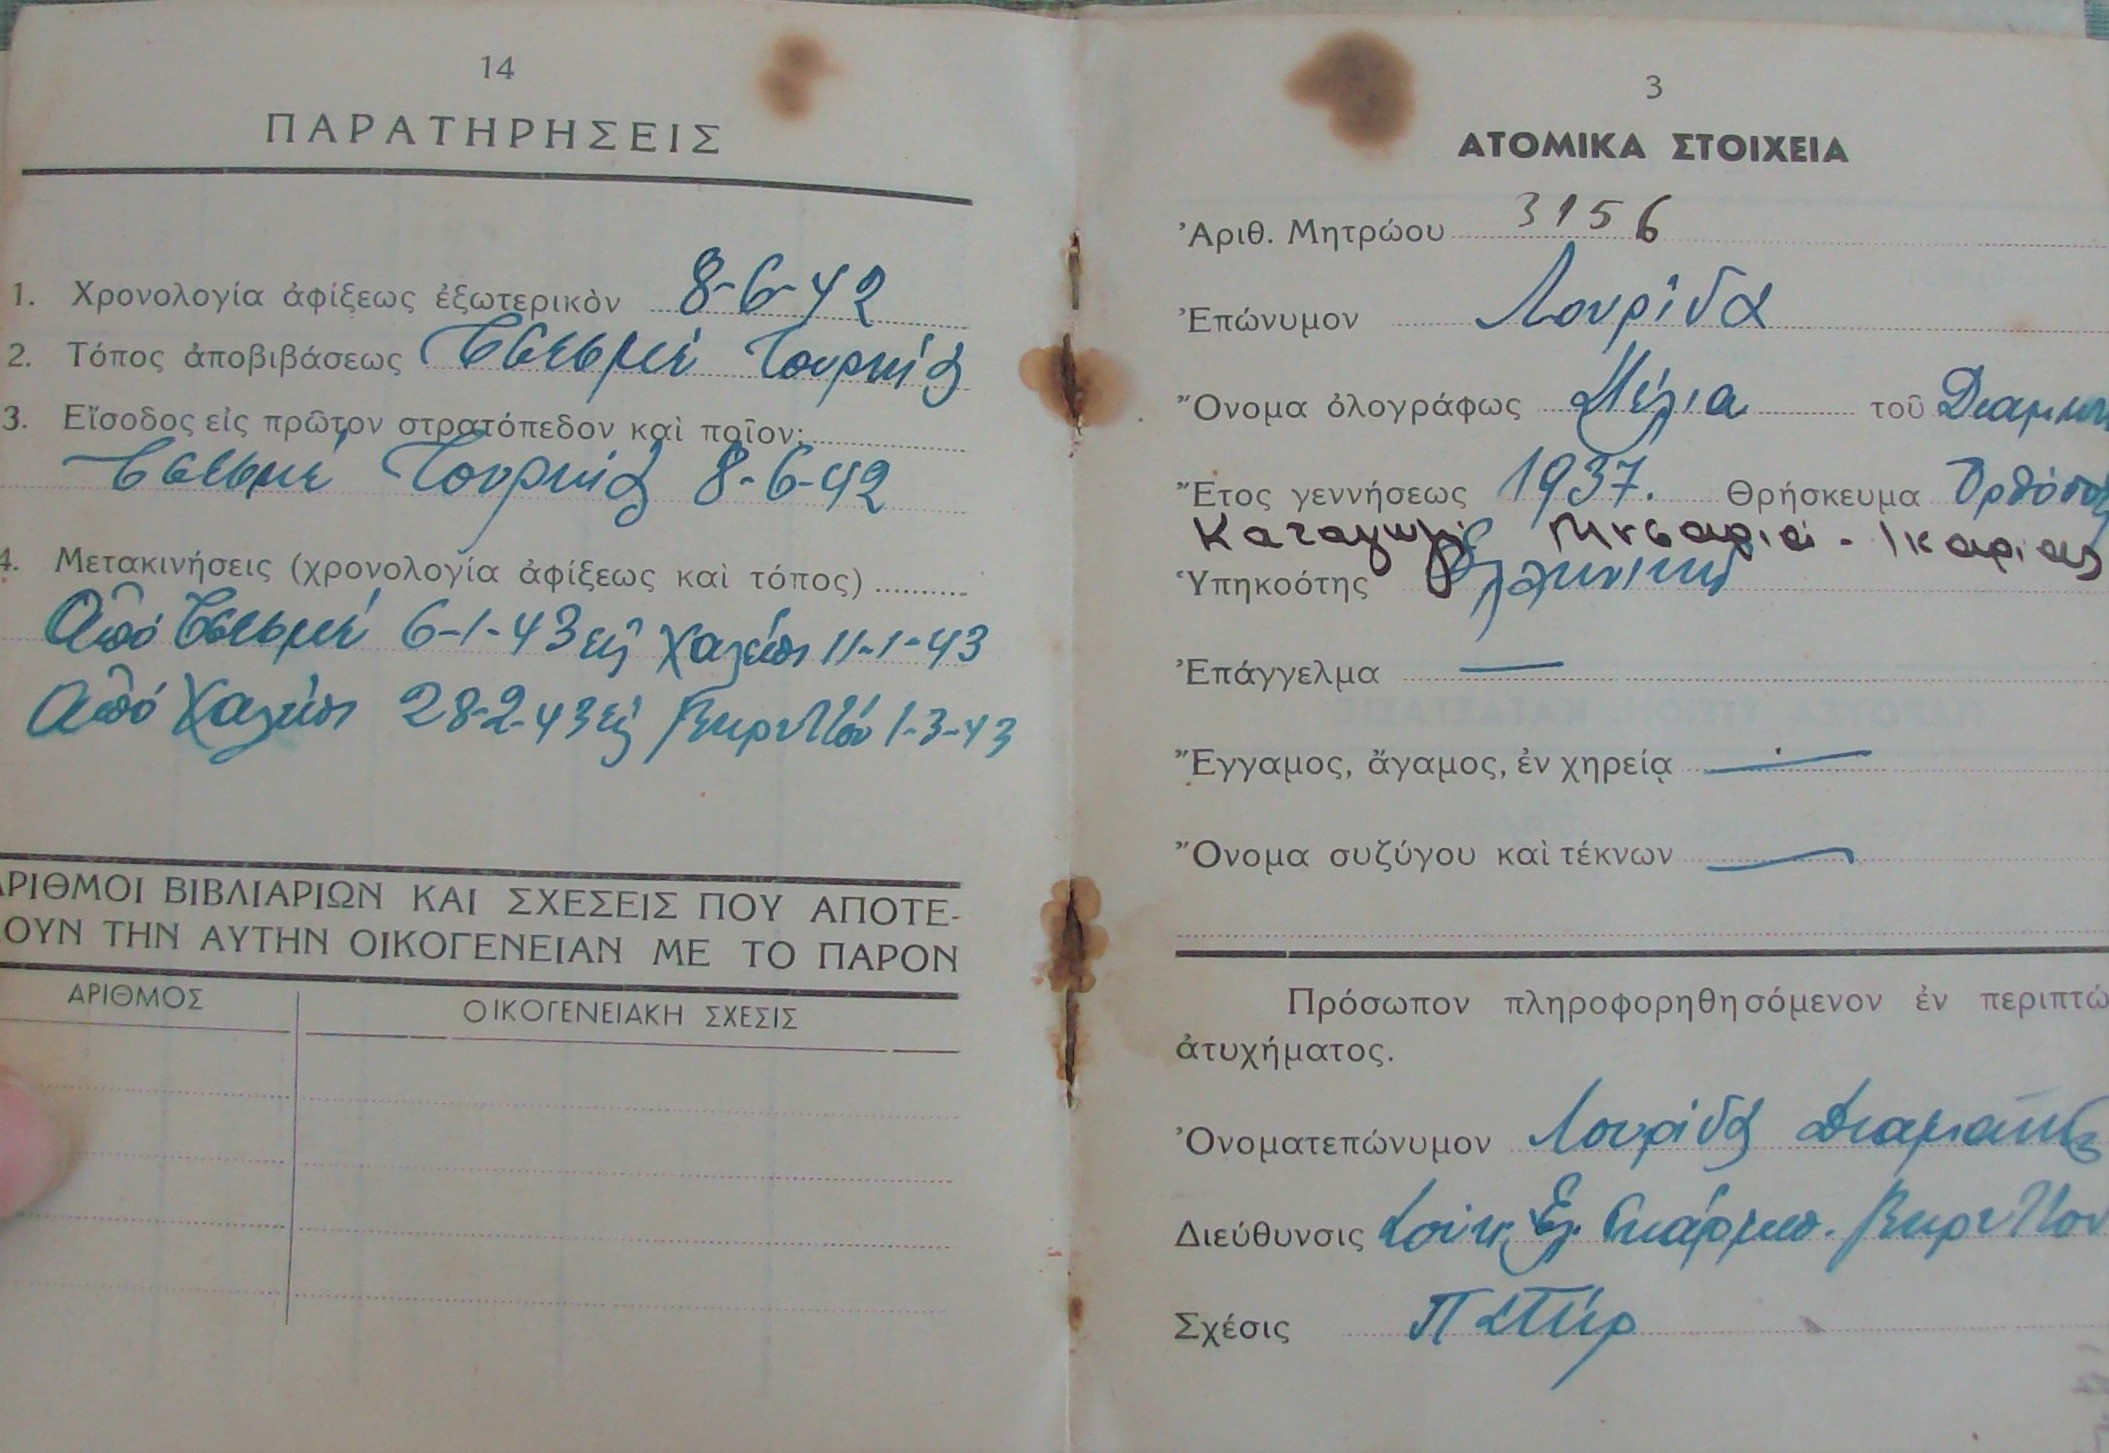 14
ΠΑΡΑΤΗΡΗΣΕΙΣ
1. Χρονολογία ἀφίξεως ἐξωτερικὸν 8-6-42
2. Τόπος ἀποβιβάσεως Τσεσμέ Τουρκίας
3. Εἴσοδος εἰς πρῶτον στρατόπεδον καὶ ποῖον:
Τσεσμέ Τουρκίας 8-6-42
4. Μετακινήσεις (χρονολογία ἀφίξεως καὶ τόπος)
Ἀπό Τσεσμέ 6-1-43 εἰς Χαλέπι 11-1-43
Ἀπό Χαλέπι 28-2-43 εἰς Βηρυττόν 1-3-43
ΑΡΙΘΜΟΙ ΒΙΒΛΙΑΡΙΩΝ ΚΑΙ ΣΧΕΣΕΙΣ ΠΟΥ ΑΠΟΤΕ-
ΟΥΝ ΤΗΝ ΑΥΤΗΝ ΟΙΚΟΓΕΝΕΙΑΝ ΜΕ ΤΟ ΠΑΡΟΝ
ΑΡΙΘΜΟΣ ΟΙΚΟΓΕΝΕΙΑΚΗ ΣΧΕΣΙΣ
3
ΑΤΟΜΙΚΑ ΣΤΟΙΧΕΙΑ
Ἀριθ. Μητρώου 3156
Ἐπώνυμον Λουρίδα
Ὄνομα ὁλογράφως τοῦ
Ἔτος γεννήσεως 1937. Θρήσκευμα
Καταγωγή - Ικαρίας
Ὑπηκοότης Ελληνική
Ἐπάγγελμα —
Ἔγγαμος, ἄγαμος, ἐν χηρείᾳ —
Ὄνομα συζύγου καὶ τέκνων —
Πρόσωπον πληροφορηθησόμενον ἐν περιπτώ
ἀτυχήματος.
Ὀνοματεπώνυμον Λουρίδας
Διεύθυνσις
Σχέσις Πατήρ